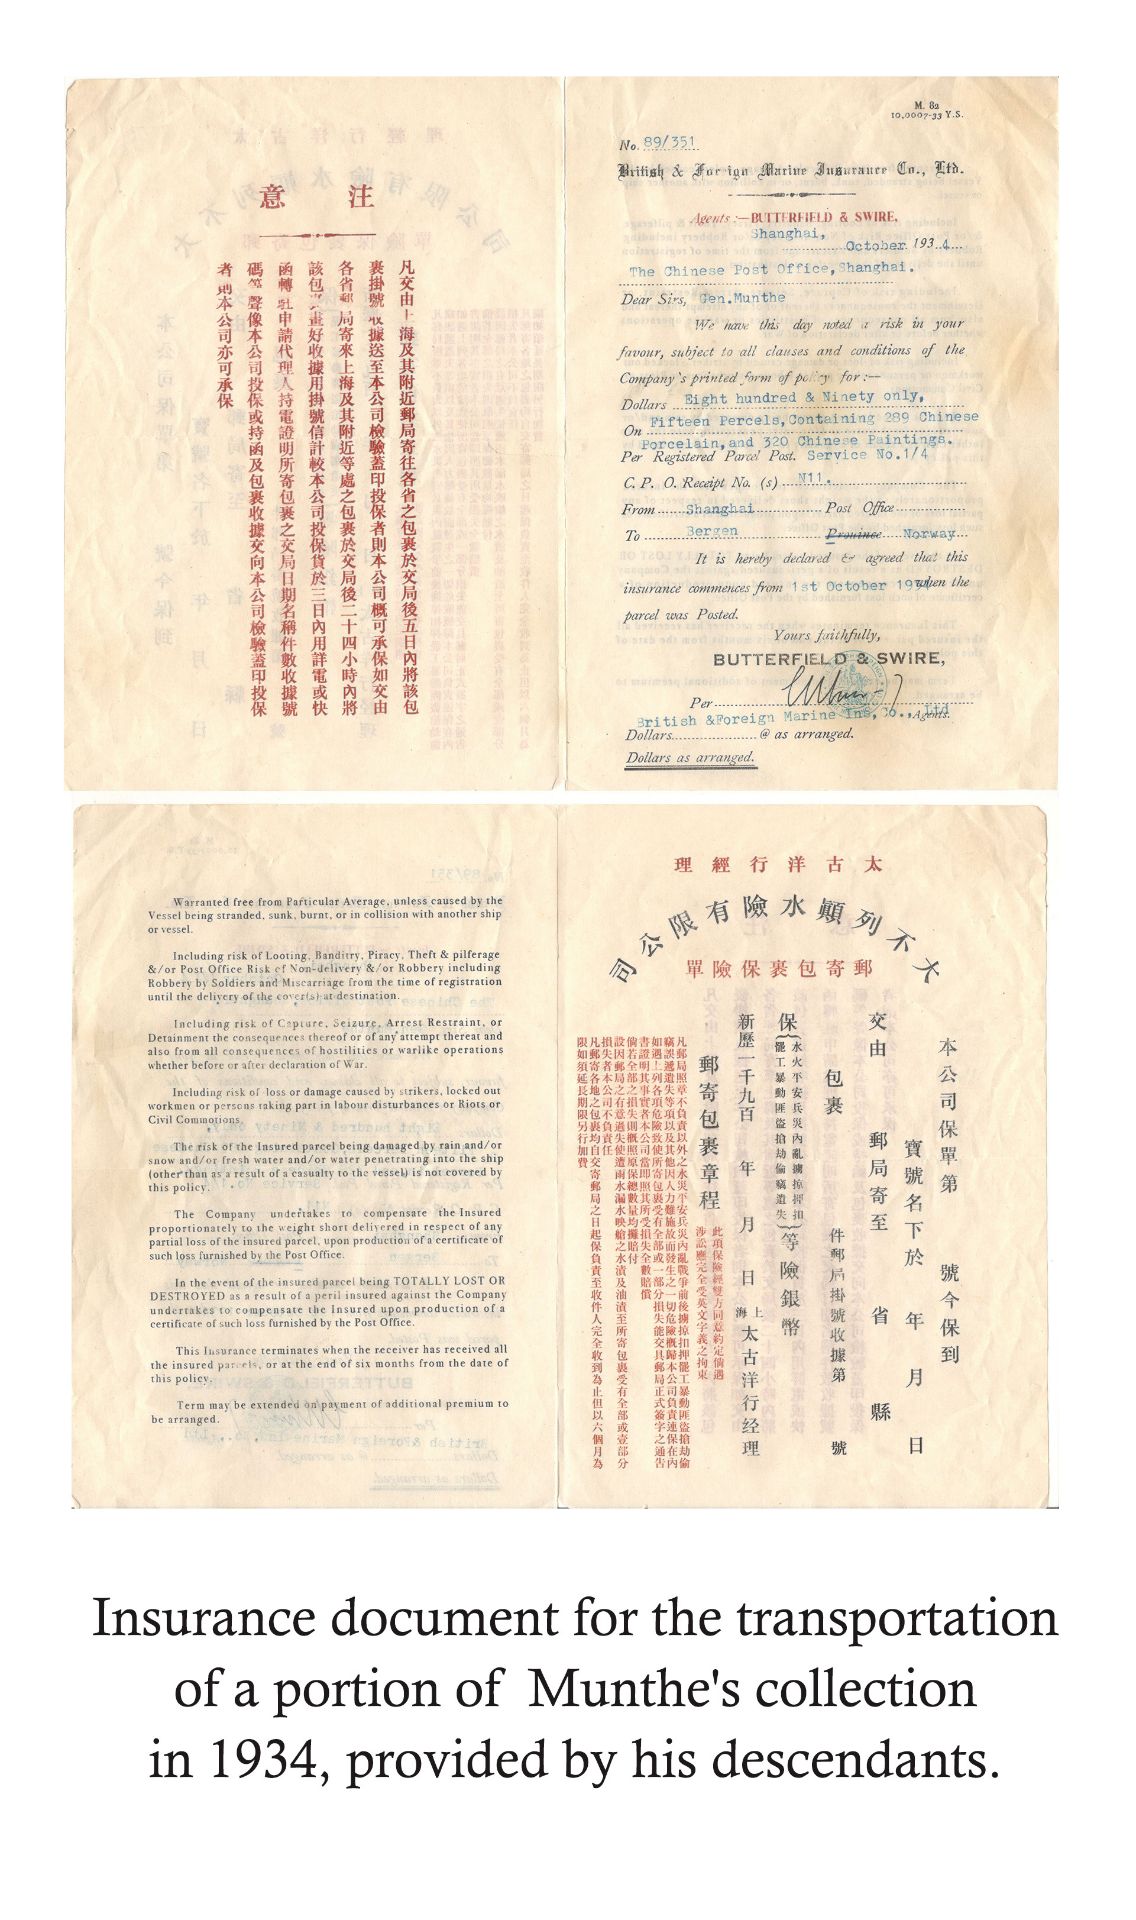 注意
凡交由上海及其附近郵局寄往各省之包裹於交局後五日內將該包
裹掛號收據送至本公司檢驗蓋印投保者則本公司概可承保如交由
各省郵局寄來上海及其附近等處之包裹於交局後二十四小時內將
該包裹畫好收據用掛號信計較本公司投保貨於三日內用詳電或快
函轉駐申請代理人持電證明所寄包裹之交局日期名稱件數收據號
碼等聲像本公司投保或持函及包裹收據交向本公司檢驗蓋印投保
者則本公司亦可承保
M. 82
10.0007-33 Y.S.
No. 89/351
British & Foreign Marine Insurance Co., Ltd.
Agents:—BUTTERFIELD & SWIRE,
Shanghai,
October 1934
The Chinese Post Office,Shanghai.
Dear Sirs, Gen.Munthe
We have this day noted a risk in your
favour, subject to all clauses and conditions of the
Company's printed form of policy for:—
Dollars Eight hundred & Ninety only,
On Fifteen Percels,Containing 289 Chinese
Porcelain,and 320 Chinese Paintings.
Per Registered Parcel Post. Service No.1/4
C. P. O. Receipt No. (s) N11.
From Shanghai Post Office
To Bergen Province Norway
It is hereby declared & agreed that this
insurance commences from 1st October 1934 when the
parcel was Posted.
Yours faithfully,
BUTTERFIELD & SWIRE,
Per
British &Foreign Marine Ins, Co., Ltd Agents.
Dollars @ as arranged.
Dollars as arranged.
Warranted free from Particular Average, unless caused by the
Vessel being stranded, sunk, burnt, or in collision with another ship
or vessel.
Including risk of Looting, Banditry, Piracy, Theft & pilferage
&/or Post Office Risk of Non-delivery &/or Robbery including
Robbery by Soldiers and Miscarriage from the time of registration
until the delivery of the cover(s) at destination.
Including risk of Capture, Seizure, Arrest Restraint, or
Detainment the consequences thereof or of any attempt thereat and
also from all consequences of hostilities or warlike operations
whether before or after declaration of War.
Including risk of loss or damage caused by strikers, locked out
workmen or persons taking part in labour disturbances or Riots or
Civil Commotions.
The risk of the Insured parcel being damaged by rain and/or
snow and/or fresh water and/or water penetrating into the ship
(other than as a result of a casualty to the vessel) is not covered by
this policy.
The Company undertakes to compensate the Insured
proportionately to the weight short delivered in respect of any
partial loss of the insured parcel, upon production of a certificate of
such loss furnished by the Post Office.
In the event of the insured parcel being TOTALLY LOST OR
DESTROYED as a result of a peril insured against the Company
undertakes to compensate the Insured upon production of a
certificate of such loss furnished by the Post Office.
This Insurance terminates when the receiver has received all
the insured parcels, or at the end of six months from the date of
this policy.
Term may be extended on payment of additional premium to
be arranged.
太古洋行經理
大不列顚水險有限公司
郵寄包裹保險單
本公司保單第 號今保到
寶號名下於 年 月 日
交由 郵局寄至 省 縣
包裹 件郵局掛號收據第 號
保
水火平安兵災內亂擄掠押扣
罷工暴動匪盜搶劫偷竊遺失
等險銀幣
新歷一千九百 年 月 日
上海 太古洋行经理
郵寄包裹章程
此項保險經雙方同意約定倘遇
涉訟應完全受英文字義之拘束
凡郵局照章不負責以外之水災平安兵災內亂戰爭前後擄掠扣押罷工暴動匪盜搶劫偷
竊誤遞遺失等項以及其他因人力難施故而發生之一切危險概歸本公司負責連保在內
如遇上列各項危險致使所寄包裹受有全部或一部分損失能交具郵局正式簽字之通告
書證明其事實者本公司當即照其所受損失全數賠償
倘若全部之損失則概照原保總數量均攤賠付
設因郵局之有意過失使遭雨水漏水映艙之水漬及油漬至所寄包裹受有全部或壹部分
損失者本公司不負責任
凡郵寄各地之包裹均自交寄郵局之日起保負責至收件人完全收到為止但以六個月為
限如須延長期限另行加費
Insurance document for the transportation
of a portion of Munthe's collection
in 1934, provided by his descendants.